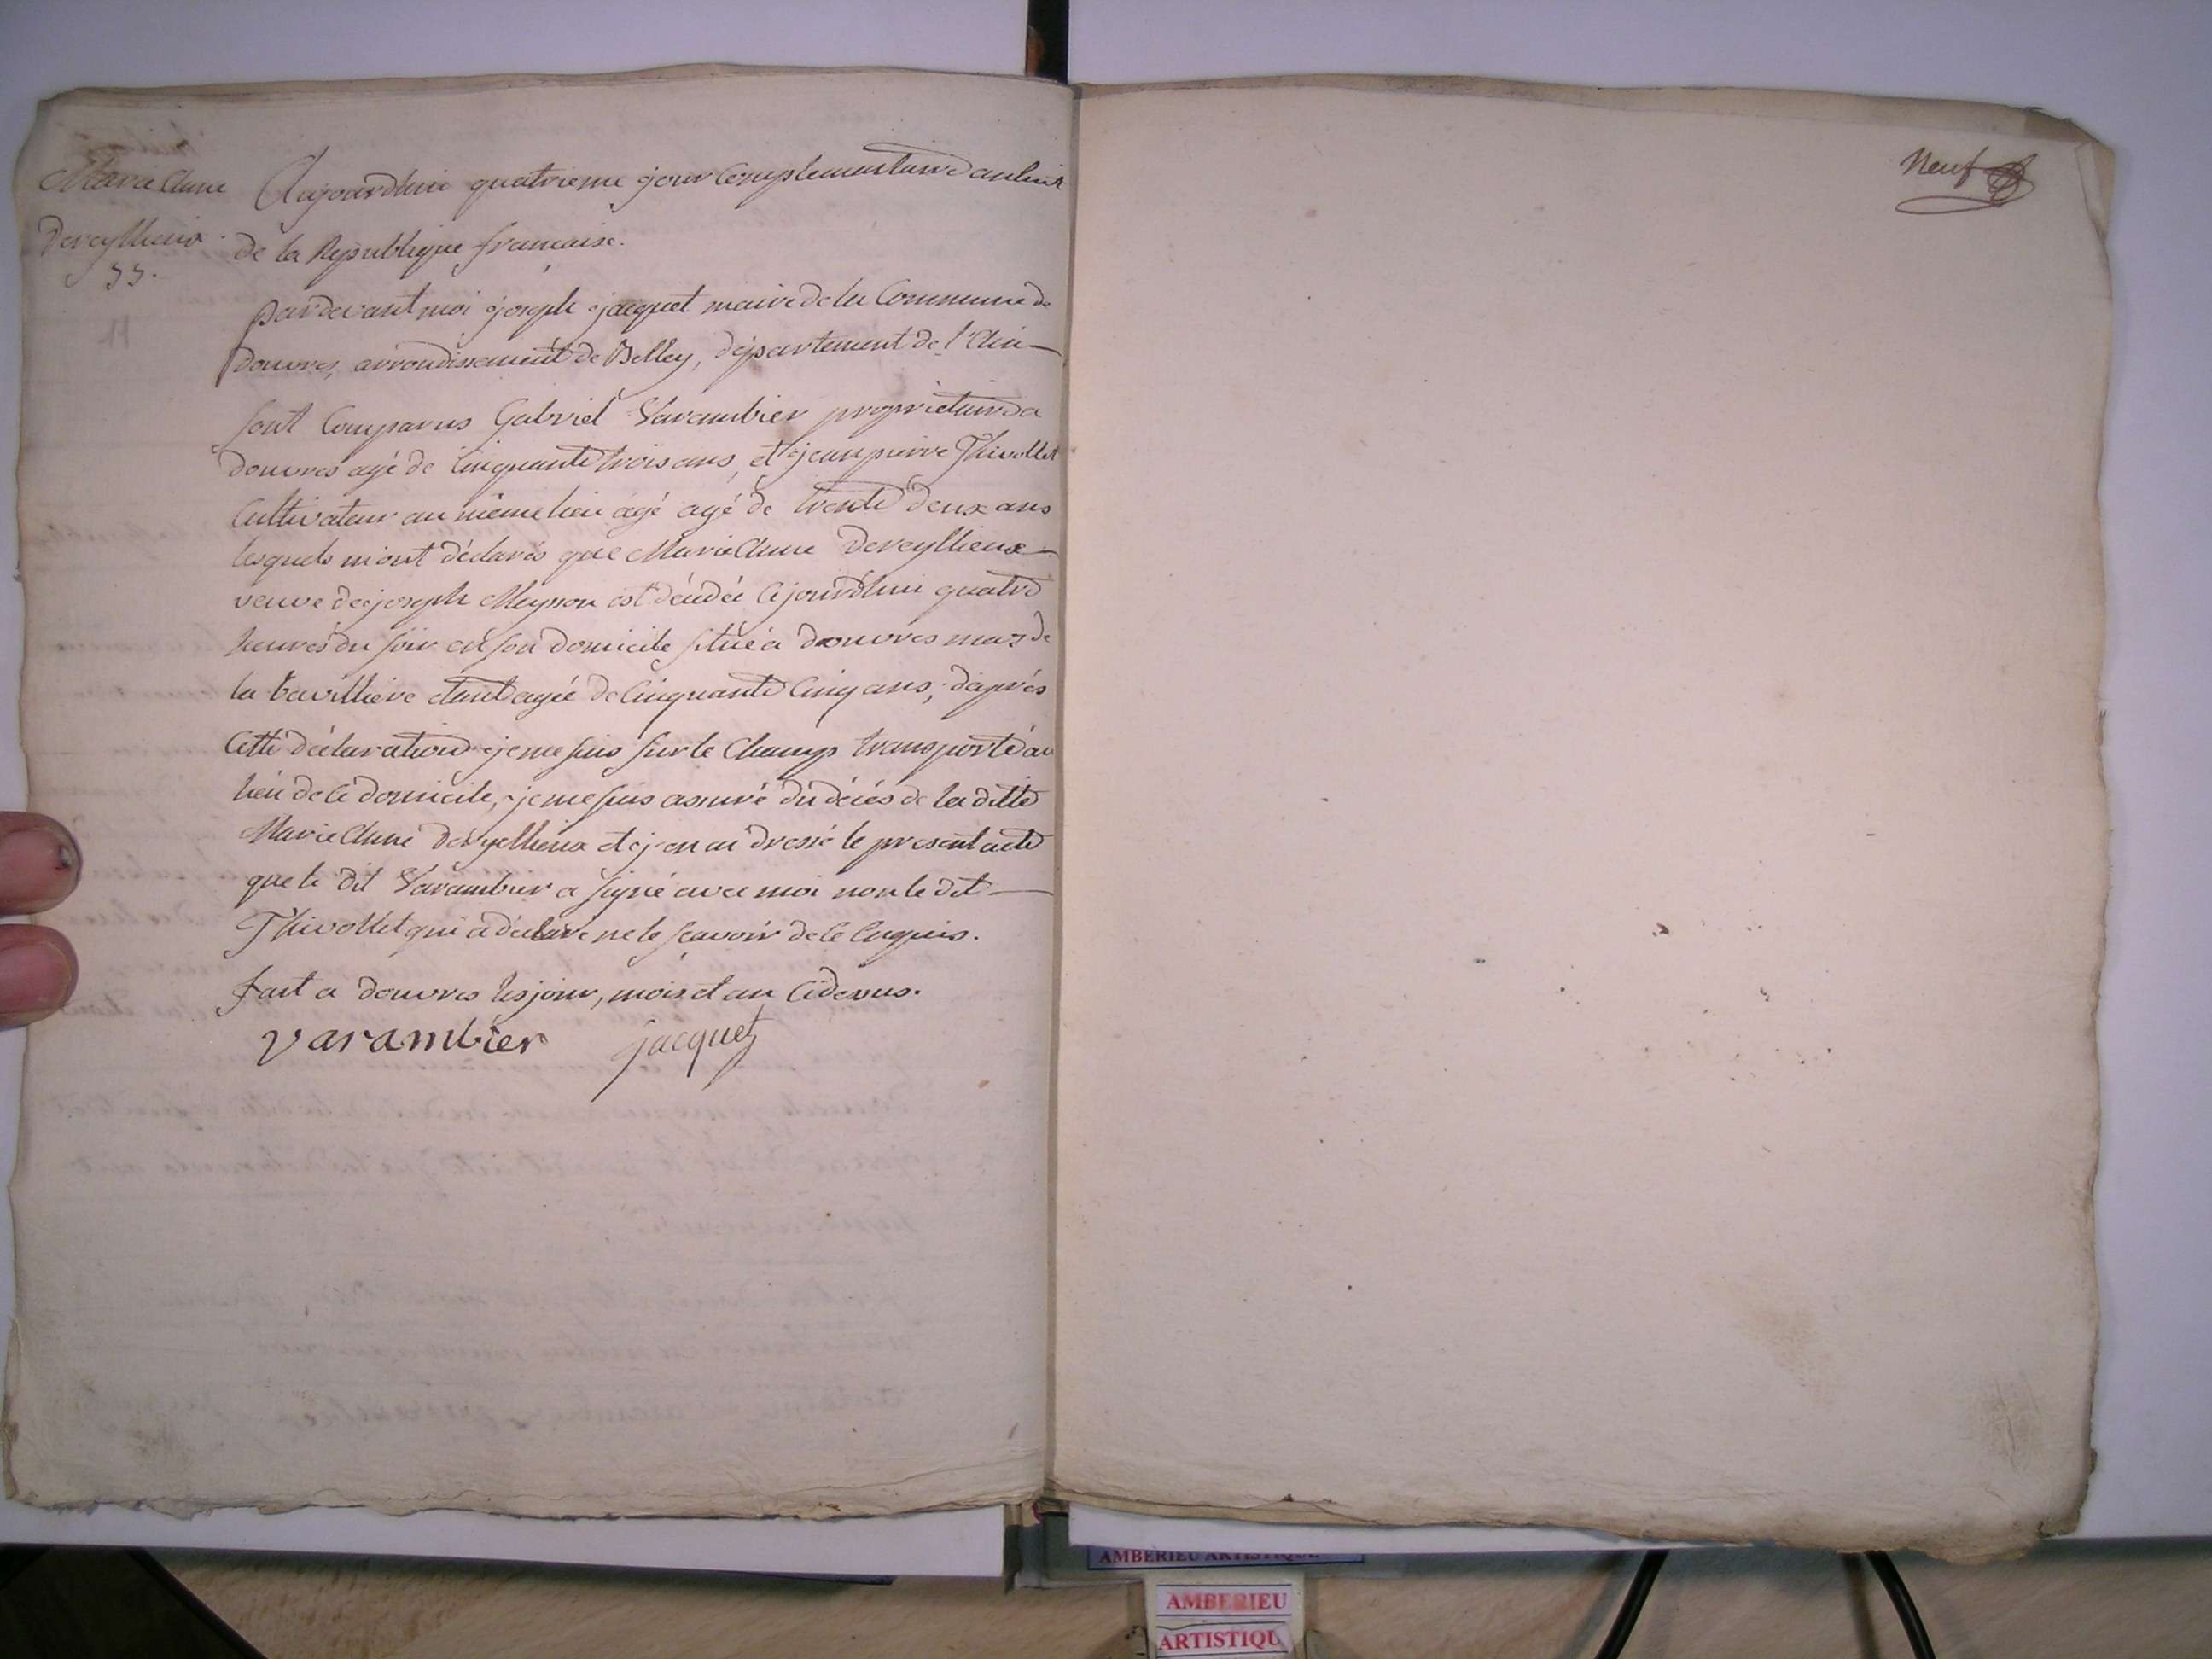 Marie Anne
Dereyllieux
55.
Aujourdhui quatrieme jour Complementaire d'an huit
de la République francaise.
pardevant moi joseph jacquet maire de la Commune de
Douvres, arrondissement de Belley, département de l'Ain
sont Comparus Gabriel Varambier proprietaire a
douvres agé de Cinquante trois ans, et jean pierre Thivollet
Cultivateur au même lieu agé agé de trente deux ans
lesquels m'ont déclarés que Marie Anne Dereyllieux
veuve de joseph Meysson est décédée Cejourd'hui quatre
heures du soir en son domicile situé a douvres mas de
la étant agée de Cinquante Cinq ans; d'après
Cette déclaration je me suis sur le Champ transporté au
lieu de Ce domicile, je me suis assuré du décés de la ditte
Marie Anne dereyellieux et j'en ai dressé le present acte
que le dit Varambier a signé avec moi non le dit
Thivollet qui a déclaré ne le sçavoir de Ce Enquis.
fait a douvres les jour, mois et an Cidessus.
varambier jacquet
Neuf
AMBERIEU ARTISTIQUE
AMBERIEU
ARTISTIQU